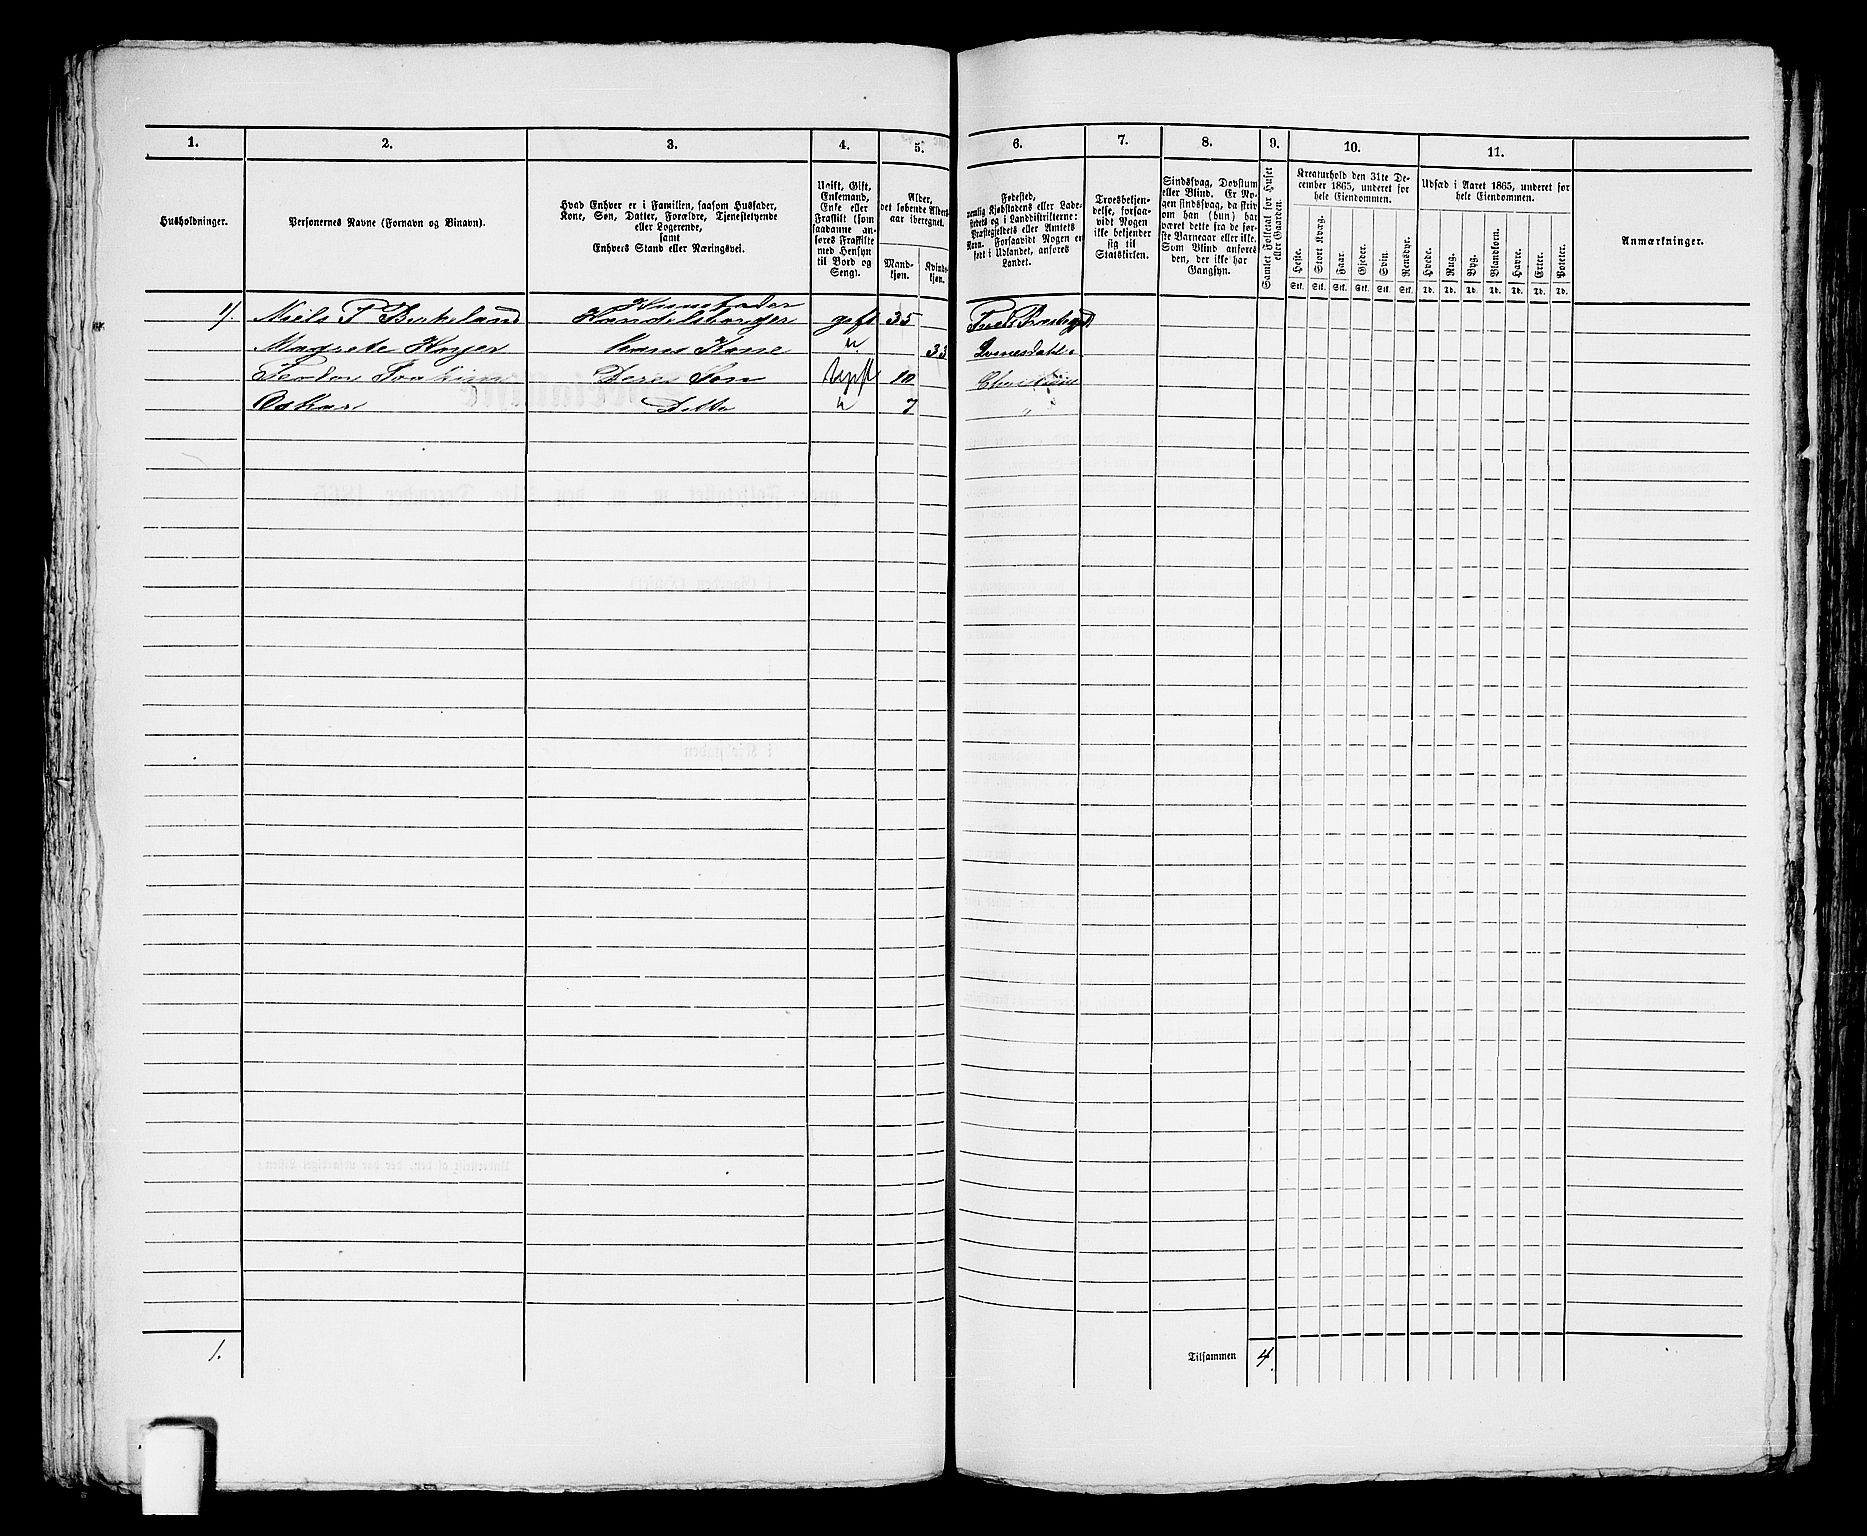 1. 2. 3. 4. 5. 6. 7. 8. 9. 10. 11.
Husholdninger.
Personernes Navne (Fornavn og Binavn).
Hvad Enhver er i Familien, saasom Husfader,
Kone, Søn, Datter, Forældre, Tjenestetyende
eller Logerende,
samt
Enhvers Stand eller Næringsvei.
Ugift, Gift,
Enkemand,
Enke eller
Fraskilt (som
saadanne an-
føres Fraskilte
med Hensyn
til Bord og
Seng).
Alder,
det løbende Alders-
aar iberegnet.
Mand-
kjøn.
Kvinde-
kjøn.
Fødested,
nemlig Kjøbstadens eller Lade-
stedets og i Landdistrikterne:
Præstegjeldets eller Amtets
Navn. Forsaavidt Nogen er
født i Udlandet, anføres
Landet.
Troesbekjen-
delse, forsaa-
vidt Nogen
ikke bekjender
sig til
Statskirken.
Sindssvag, Døvstum
eller Blind. Er No-
gen sindssvag, da skriv
om han (hun) har
været dette fra de før-
ste Barneaar eller ikke.
Som Blind anføres
den, der ikke har
Gangsyn.
Samlet Folketal for Huset
eller Gaarden.
Kreaturhold den 31te De-
cember 1865, underet for
hele Eiendommen.
Heste. Stort Kvæg. Faar. Gjeder. Svin. Rensdyr.
Stk. Stk. Stk. Stk. Stk. Stk.
Udsæd i Aaret 1865, underet for
hele Eiendommen.
Hvede. Rug. Byg. Blandkorn. Havre. Erter. Poteter.
Td. Td. Td. Td. Td. Td. Td.
Anmærkninger.
Huusfader
1). Niels T Birkeland Handelsborger gift 35
Magrete Høyer hans Kone " 33 Qvinesdahl
Teodor Joakim Deres Søn Ugift 10
Oskar Ditto " 7 "
1. Tilsammen 4.